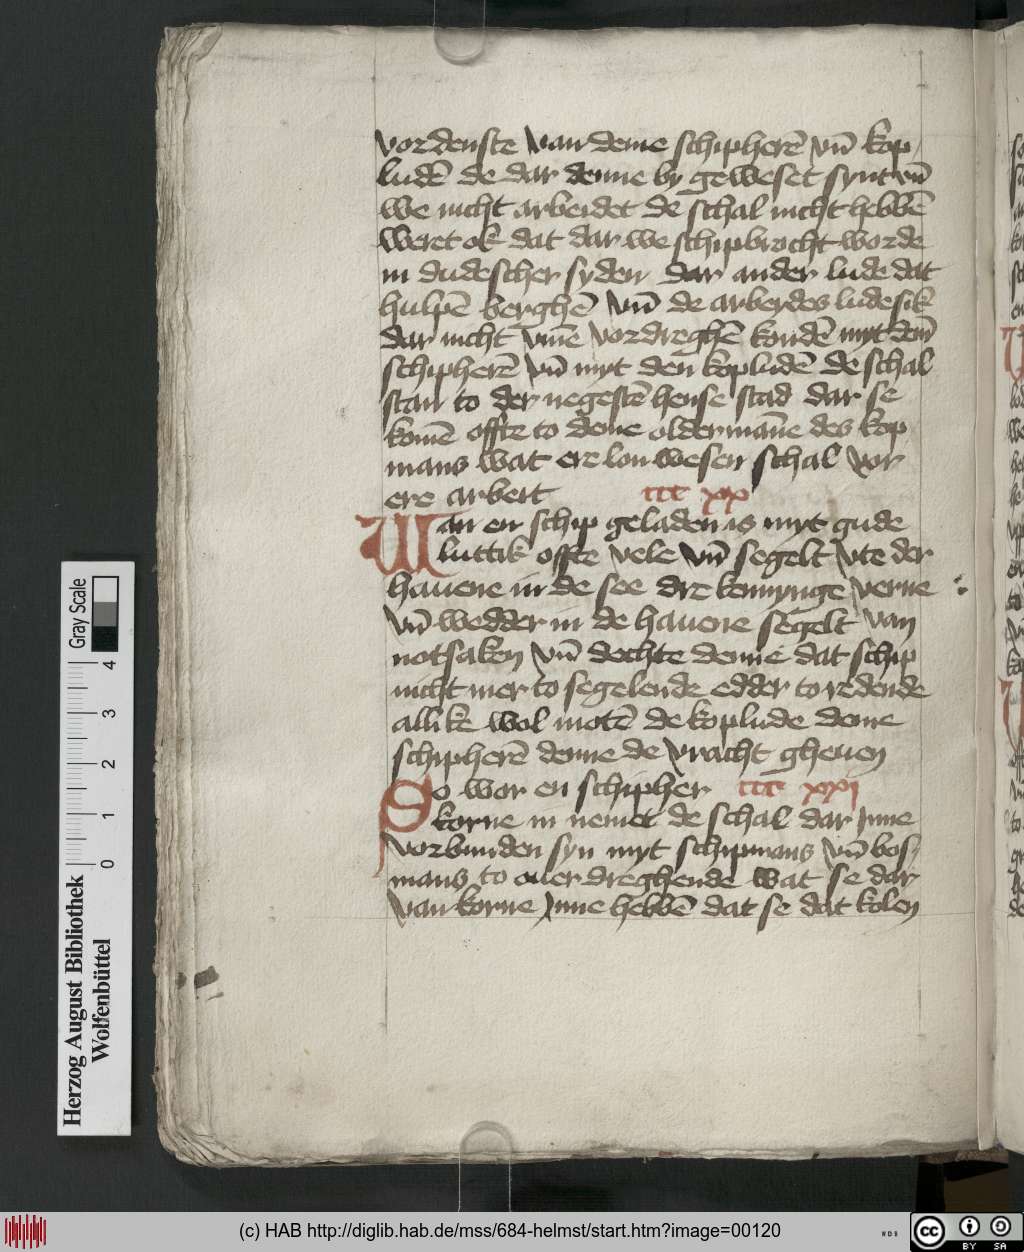 vordenste van deme schipherē vn̄ kop
ludē de dar denne by geweset synt vn̄
we nicht arbeidet de schal nicht hebbē
weret ok dat dar we schipbrocht worde
in dudescher syden dar ander lude dat
hulpē berghē vn̄ de arbeydes lude sik
dar nicht vm̄e vordreghē kondē myt dem̄
schipherē vn̄ myt den kopludē de schal
stan to der negestē hense stad dar se
komē offte to deme oldermān̄e des kop
mans wat ere lon wesen schal vor
ere arbeit
ccc xx
Wan en schip geladen is myt gude
luttik offte vele vn̄ segelt vte der
hauene in de see dre kennynge verne
vn̄ wedder in de hauene segelt van
notsaken vn̄ dochte denne dat schip
nicht mer to segelende edder to redende
allike wol motē de koplude deme
schipherē denne de vracht gheuen
So wor en schipher
ccc xxj
korne in nemet de schal dar jnne
vorbunden syn myt schipmans vn̄ bos
mans to ouer dreghende wat se dar
van korne jnne hebbē dat se dat kolen
Gray Scale
0 1 2 3 4
Herzog August Bibliothek
Wolfenbüttel
(c) HAB http://diglib.hab.de/mss/684-helmst/start.htm?image=00120
WDB
cc BY SA